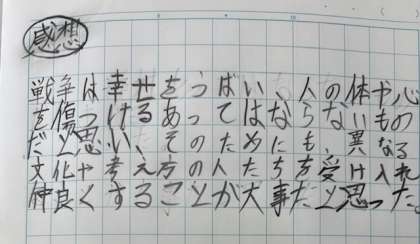 感想
戦争は幸せをうばい、人の体や心
を傷つけるあってはならないもの
だと思い、そのためにも、異なる
文化や考え方の人たちを受け入れ
仲良くすることが大事だと思った。